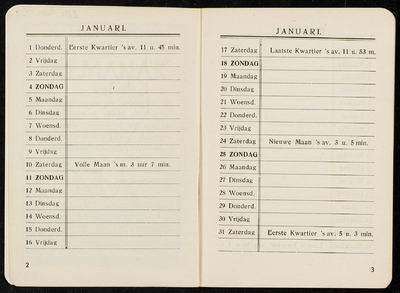 JANUARI.
1 Donderd. Eerste Kwartier 's av. 11 u. 45 min.
2 Vrijdag
3 Zaterdag
4 ZONDAG
5 Maandag
6 Dinsdag
7 Woensd.
8 Donderd.
9 Vrijdag
10 Zaterdag Volle Maan 's m. 3 uur 7 min.
11 ZONDAG
12 Maandag
13 Dinsdag
14 Woensd.
15 Donderd.
16 Vrijdag
2
JANUARI.
17 Zaterdag Laatste Kwartier 's av. 11 u. 53 m.
18 ZONDAG
19 Maandag
20 Dinsdag
21 Woensd.
22 Donderd.
23 Vrijdag
24 Zaterdag Nieuwe Maan 's av. 3 u. 5 min.
25 ZONDAG
26 Maandag
27 Dinsdag
28 Woensd.
29 Donderd.
30 Vrijdag
31 Zaterdag Eerste Kwartier 's av. 5 u. 3 min.
3